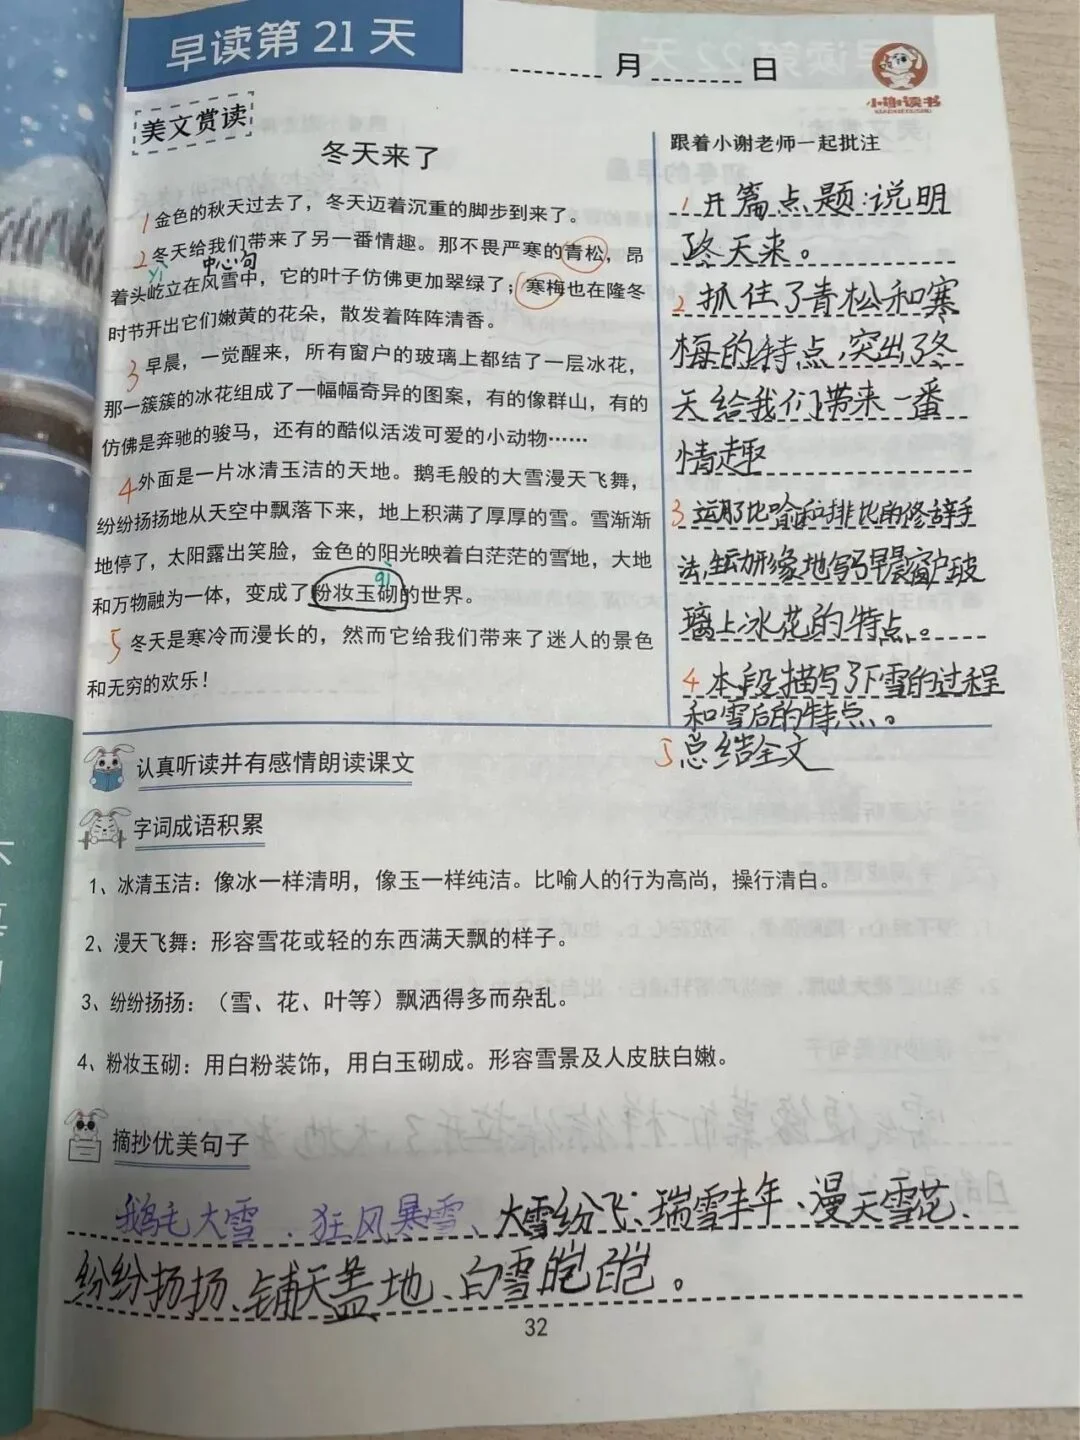 早读第 21 天
月 日
小谢读书
美文赏读
冬天来了
1 金色的秋天过去了，冬天迈着沉重的脚步到来了。
2 冬天给我们带来了另一番情趣。那不畏严寒的青松，昂
yì 中心句
着头屹立在风雪中，它的叶子仿佛更加翠绿了；寒梅也在隆冬
时节开出它们嫩黄的花朵，散发着阵阵清香。
3 早晨，一觉醒来，所有窗户的玻璃上都结了一层冰花，
那一簇簇的冰花组成了一幅幅奇异的图案，有的像群山，有的
仿佛是奔驰的骏马，还有的酷似活泼可爱的小动物……
4 外面是一片冰清玉洁的天地。鹅毛般的大雪漫天飞舞，
纷纷扬扬地从天空中飘落下来，地上积满了厚厚的雪。雪渐渐
地停了，太阳露出笑脸，金色的阳光映着白茫茫的雪地，大地
qì
和万物融为一体，变成了粉妆玉砌的世界。
5 冬天是寒冷而漫长的，然而它给我们带来了迷人的景色
和无穷的欢乐！
跟着小谢老师一起批注
1 开篇点题：说明
了冬天来。
2 抓住了青松和寒
梅的特点，突出了冬
天给我们带来一番
情趣
3 运用了比喻和排比的修辞手
法，生动形象地写了早晨窗户玻
璃上冰花的特点。
4 本段描写了下雪的过程
和雪后的特点。
5 总结全文
认真听读并有感情朗读课文
字词成语积累
1、冰清玉洁：像冰一样清明，像玉一样纯洁。比喻人的行为高尚，操行清白。
2、漫天飞舞：形容雪花或轻的东西满天飘的样子。
3、纷纷扬扬：（雪、花、叶等）飘洒得多而杂乱。
4、粉妆玉砌：用白粉装饰，用白玉砌成。形容雪景及人皮肤白嫩。
摘抄优美句子
鹅毛大雪、狂风暴雪、大雪纷飞、瑞雪丰年、漫天雪花、
纷纷扬扬、铺天盖地、白雪皑皑。
32